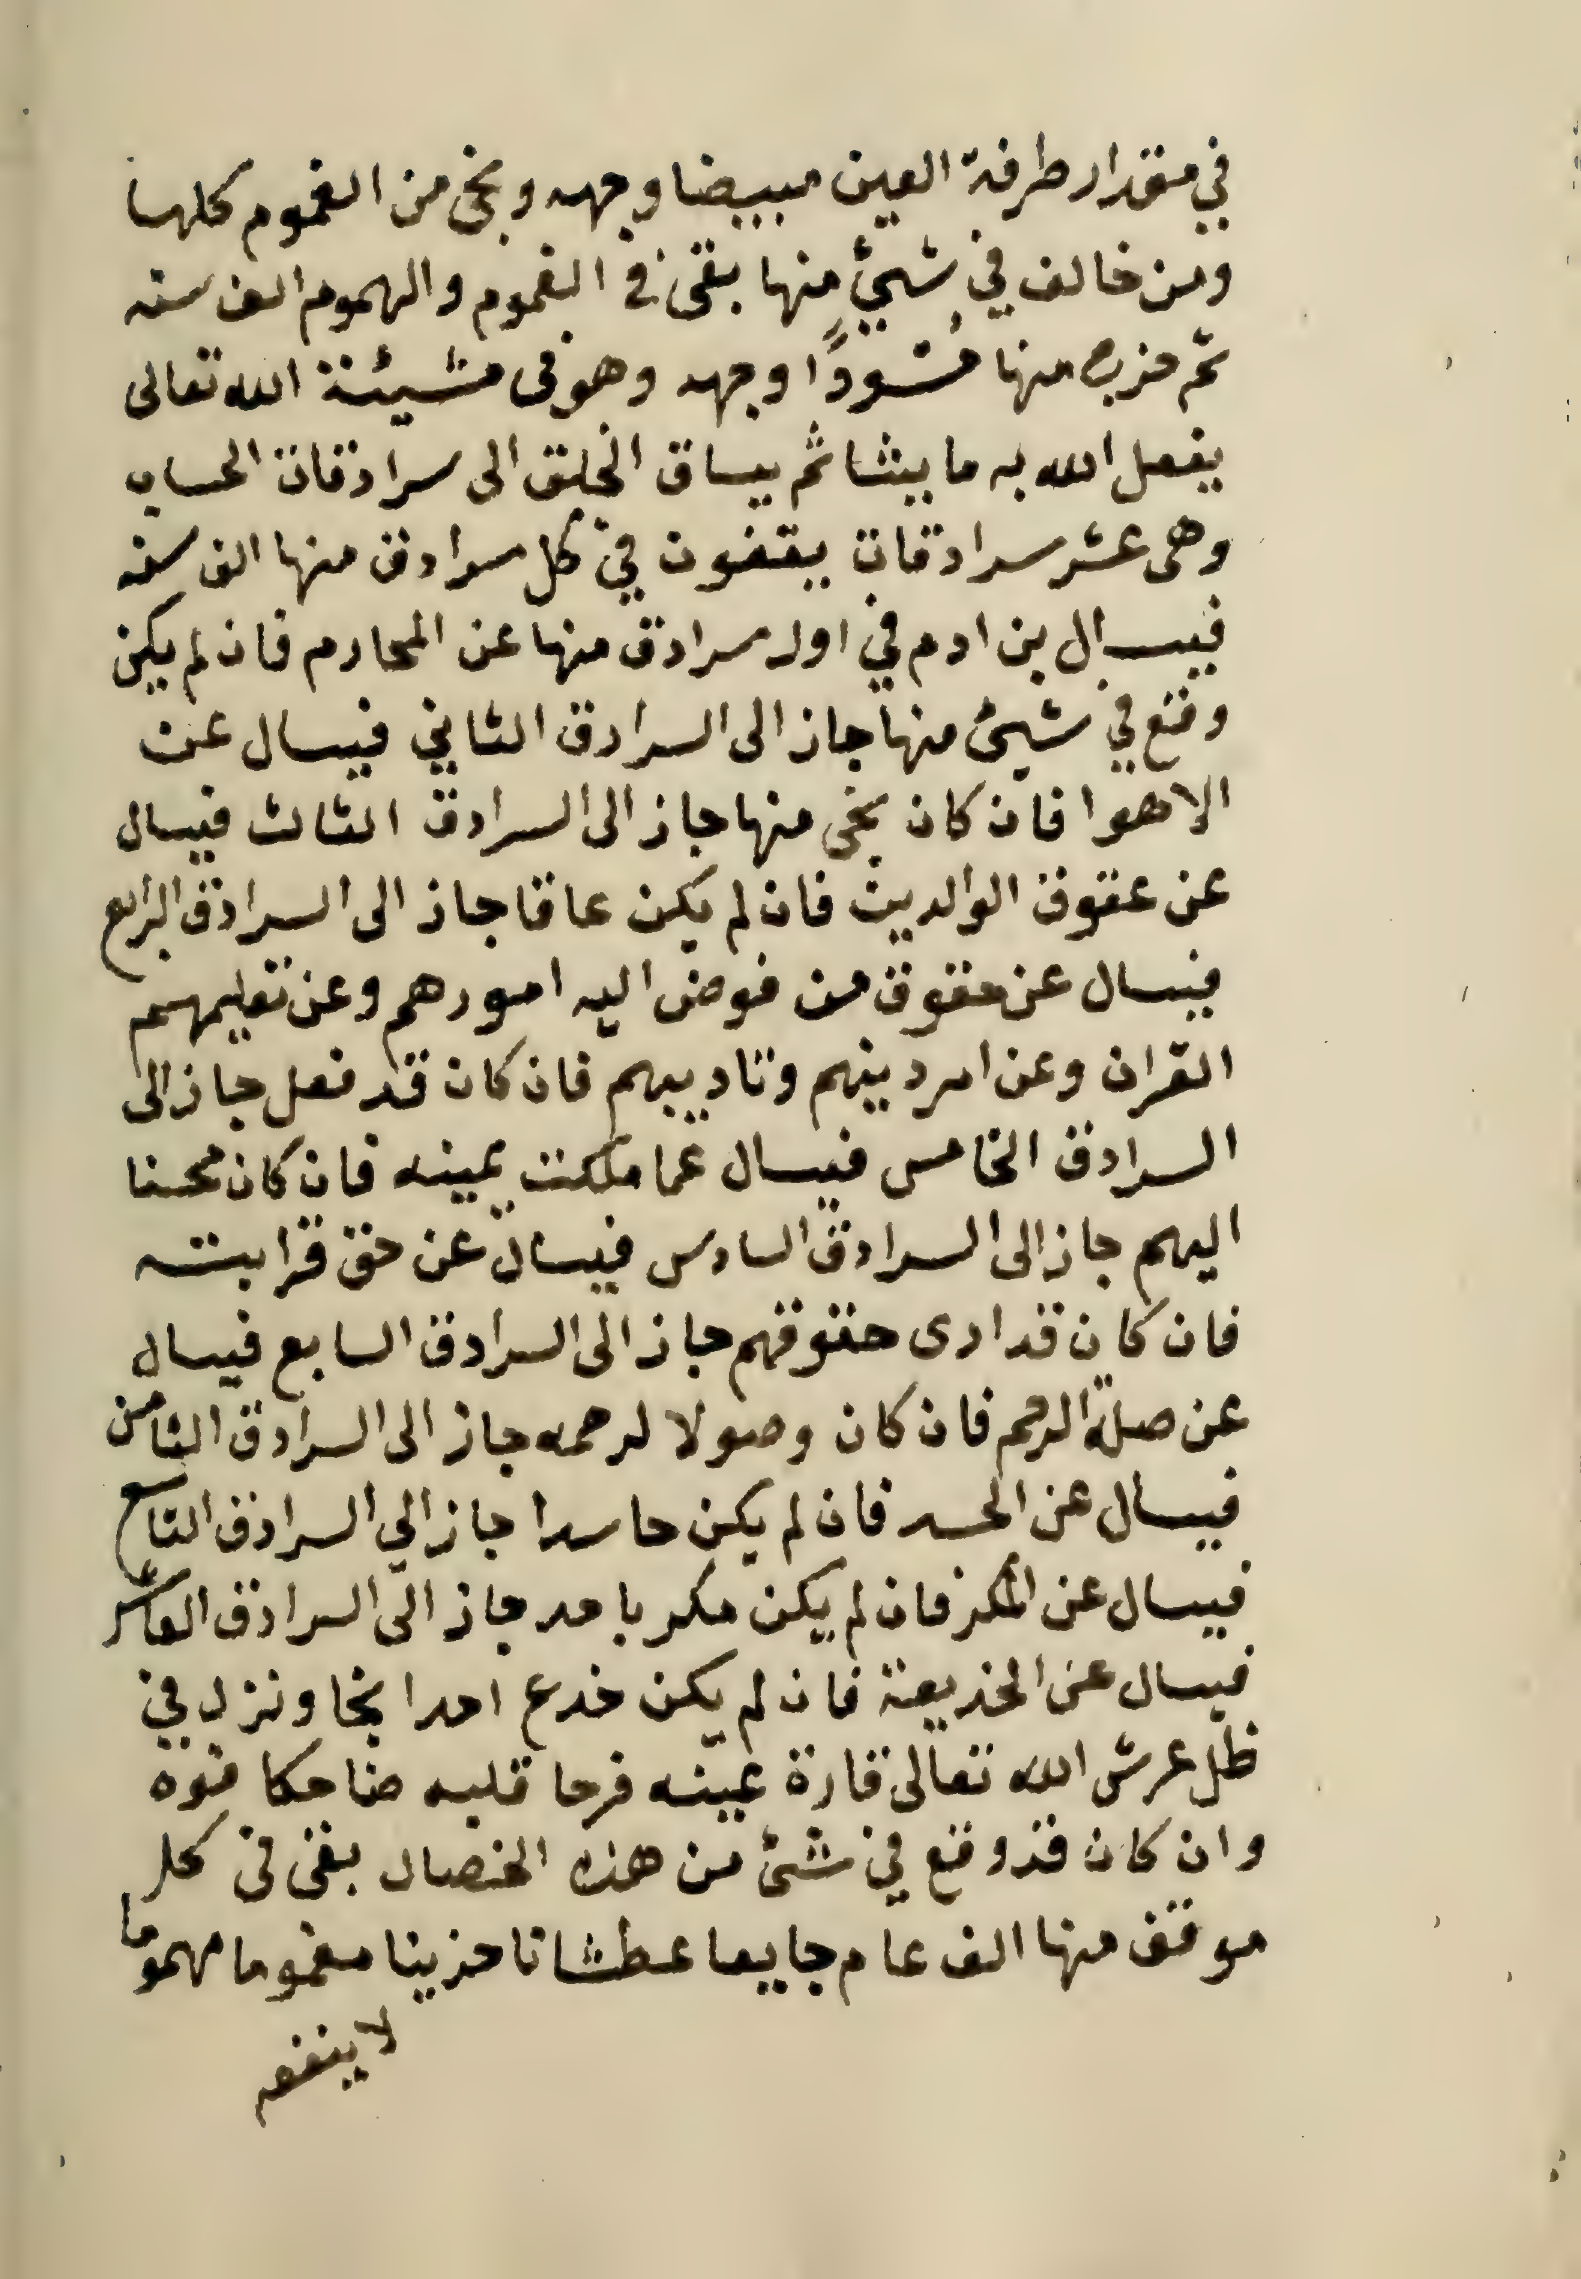 في مقدار طرفة العين مبيضا وجهه ونجى من الغموم كلها
ومن خالف في شيئ منها بقى في الغموم والهموم الف سنه
ثم خرج منها مُسْودًا وجهه وهو فى مشيئة الله تعالى
يفعل الله به ما يشا ثم يساق الخلق الى سرادقات الحساب
وهى عشر سرادقات يقفون في كل سرادق منها الف سنه
فيسال بن ادم في اول سرادق منها عن المحارم فان لم يكن
وقع في شيئ منها جاز الى السرادق الثاني فيسال عن
الاهوا فان كان نجى منها جاز الى السرادق الثالث فيسال
عن عقوق الوالدين فان لم يكن عاقا جاز الى السرادق الرابع
فيسال عن حقوق من فوض اليه امورهم وعن تعليمهم
القران وعن امر دينهم وتاديبهم فان كان قد فعل جاز الى
السرادق الخامس فيسال عما ملكت يمينه فان كان محسنا
اليهم جاز الى السرادق السادس فيسال عن حق قرابته
فان كان قد ادى حقوقهم جاز الى السرادق السابع فيسال
عن صلة الرحم فان كان وصولا لرحمه جاز الى السرادق الثامن
فيسال عن الحسد فان لم يكن حاسدا جاز الي السرادق التاسع
فيسال عن المكر فان لم يكن مكر باحد جاز الى السرادق العاشر
فيسال عن الخديعة فان لم يكن خدع احدا نجا ونزل في
ظل عرش الله تعالى قارة عينه فرحا قلبه ضاحكا فوه
وان كان قد وقع في شئ من هذه الخصال بقى في كل
موقف منها الف عام جايعا عطشانا حزينا مغموما مهموما
لا ينفعه